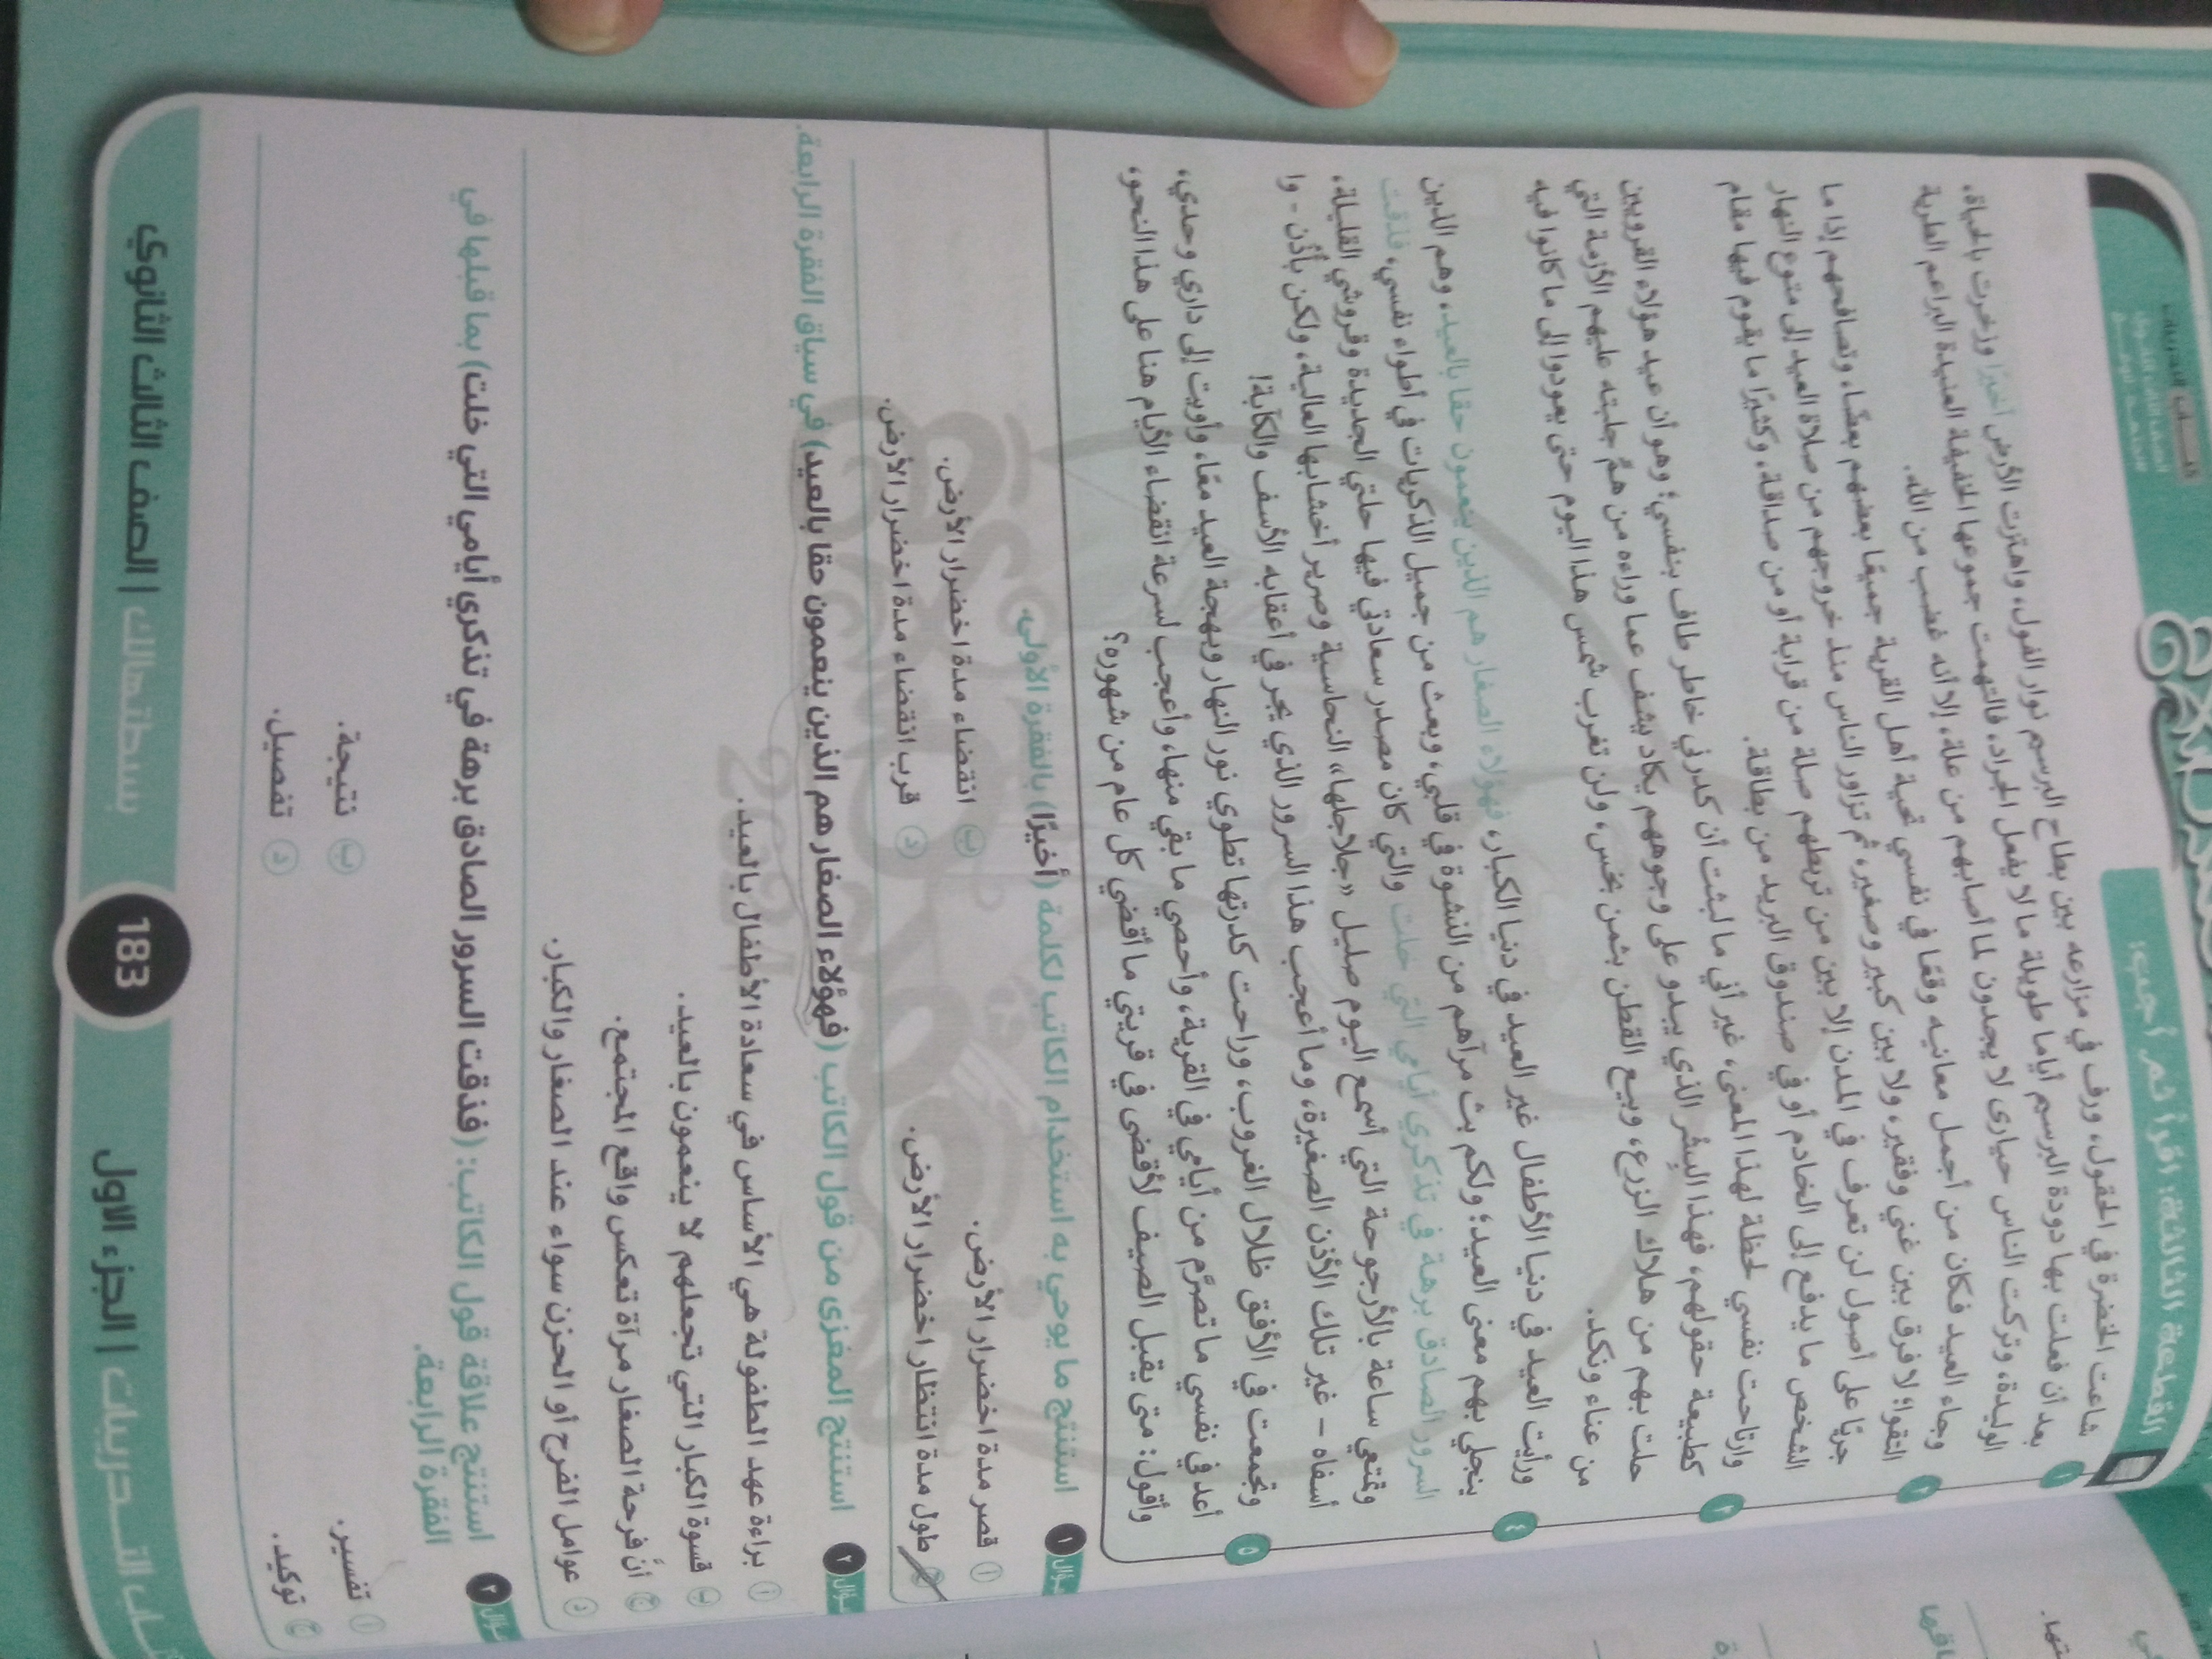 القطعة الثالثة: اقرأ ثم أجب:
١ شاعت الخضرة في الحقول، ورف في مزارعه بين بطاح البرسم نوار الفول، واهتزت الأرض أخيرًا وزخرت بالحياة،
بعد أن فعلت بها دودة البرسم أياما طويلة ما لا يفعل الجراد، فالتهمت جموعها الخفيفة العنيدة البراعم الطرية
الوليدة، وتركت الناس حيارى لا يجدون لما أصابهم من علة، إلا أنه غضب من الله.
٢ وجاء العيد فكان من أجمل معانيه وقعًا في نفسي تحية أهل القرية جميعًا بعضهم بعضًا، وتصافحهم إذا ما
التقوا؛ لا فرق بين غني وفقير، ولا بين كبير وصغير، ثم تزاور الناس منذ خروجهم من صلاة العيد إلى متوع النهار
جريًا على أصول لن تعرف في المدن إلا بين من تربطهم صلة من قرابة أو من صداقة، وكثيرًا ما يقوم فيها مقام
الشخص ما يدفع إلى الخادم أو في صندوق البريد من بطاقة.
٣ وارتاحت نفسي لحظة لهذا المعنى، غير أني ما لبثت أن كدرني خاطر طاف بنفسي؛ وهو أن عيد هؤلاء القرويين
كطبيعة حقولهم، فهذا البشر الذي يبدو على وجوههم يكاد يشف عما وراءه من همٍّ جلبته عليهم الأزمة التي
حلت بهم من هلاك الزرع، وبيع القطن بثمن بخس، ولن تغرب شمس هذا اليوم حتى يعودوا إلى ما كانوا فيه
من عناء ونكد.
٤ ورأيت العيد في دنيا الأطفال غير العيد في دنيا الكبار، فهؤلاء الصغار هم الذين ينعمون حقا بالعيد، وهم الذين
ينجلي بهم معنى العيد؛ ولكم بث مرآهم من النشوة في قلبي، وبعث من جميل الذكريات في أطواء نفسي، فذقت
السرور الصادق برهة في تذكري أيامي التي خلت والتي كان مصدر سعادتي فيها حلتي الجديدة وقروشي القليلة،
وتمتعي ساعة بالأرجوحة التي أسمع اليوم صليل «جلاجلها» النحاسية وصرير أخشابها العالية، ولكن بأُذن - وا
أسفاه - غير تلك الأذن الصغيرة، وما أعجب هذا السرور الذي يجر في أعقابه الأسف والكآبة!
٥ وتجمعت في الأفق ظلال الغروب، وراحت كدرتها تطوي نور النهار وبهجة العيد معًا، وأويت إلى داري وحدي،
أعد في نفسي ما تصرَّم من أيامي في القرية، وأحصي ما بقي منها، وأعجب لسرعة انقضاء الأيام هنا على هذا النحو،
وأقول: متى يقبل الصيف لأقضى في قريتي ما أقضي كل عام من شهوره؟
سؤال ١ استنتج ما يوحي به استخدام الكاتب لكلمة (أخيرًا) بالفقرة الأولى.
أ قصر مدة اخضرار الأرض. ب انقضاء مدة اخضرار الأرض.
ج طول مدة انتظار اخضرار الأرض. د قرب انقضاء مدة اخضرار الأرض.
سؤال ٢ استنتج المغزى من قول الكاتب (فهؤلاء الصغار هم الذين ينعمون حقا بالعيد) في سياق الفقرة الرابعة.
أ براءة عهد الطفولة هي الأساس في سعادة الأطفال بالعيد.
ب قسوة الكبار التي تجعلهم لا ينعمون بالعيد.
ج أنَّ فرحة الصغار مرآة تعكس واقع المجتمع.
د عوامل الفرح أو الحزن سواء عند الصغار والكبار.
سؤال ٣ استنتج علاقة قول الكاتب: (فذقت السرور الصادق برهة في تذكري أيامي التي خلت) بما قبلها في
الفقرة الرابعة.
أ تفسير. ب نتيجة.
ج توكيد. د تفصيل.
كتاب التـدريبات | الجزء الاول 183 بسطتهالك | الصف الثالث الثانوي